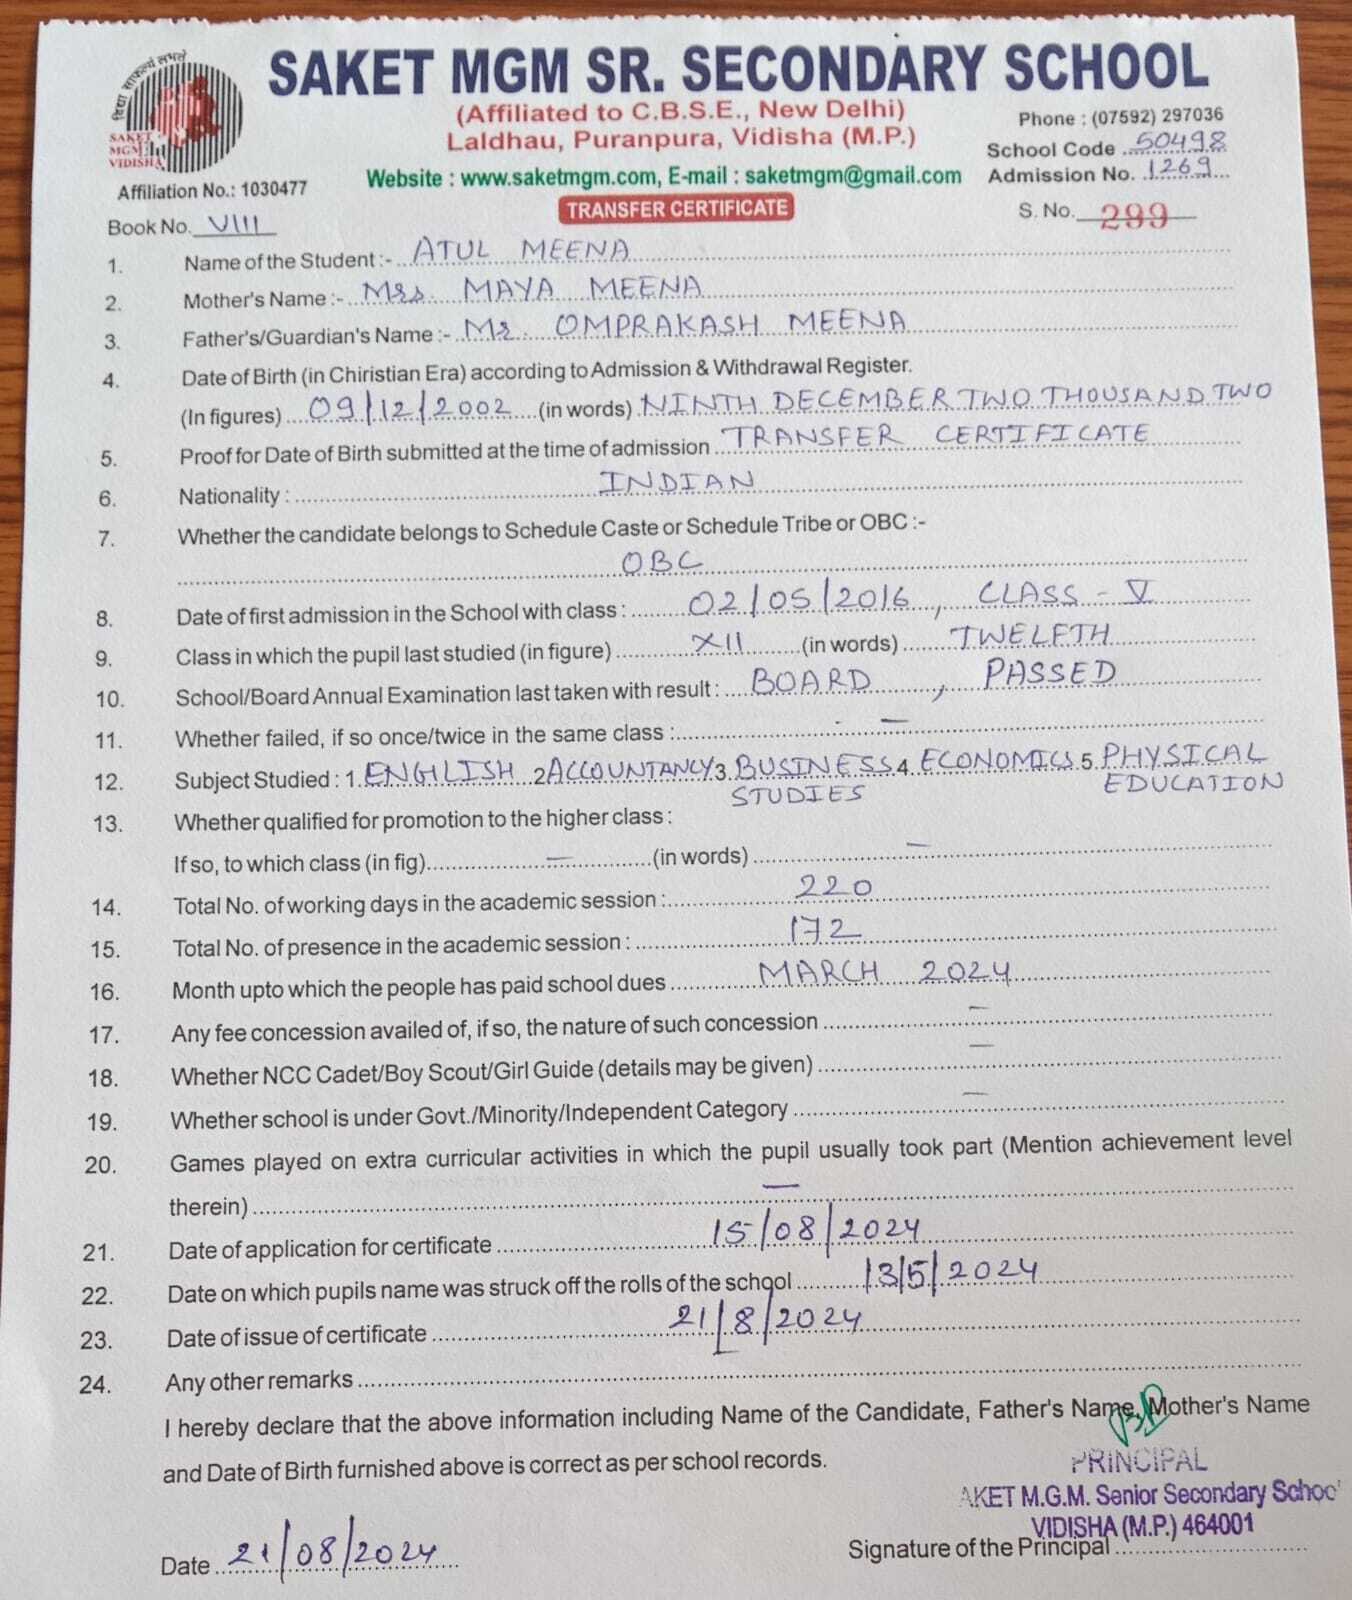 विद्या साफल्यं लभते
SAKET
MGM
VIDISHA
SAKET MGM SR. SECONDARY SCHOOL
(Affiliated to C.B.S.E., New Delhi)
Laldhau, Puranpura, Vidisha (M.P.)
Phone : (07592) 297036
School Code 50498
Website : www.saketmgm.com, E-mail : saketmgm@gmail.com
Admission No. 1269
Affiliation No.: 1030477
TRANSFER CERTIFICATE
Book No. VIII
S. No. 299
1. Name of the Student :- ATUL MEENA
2. Mother's Name :- Mrs. MAYA MEENA
3. Father's/Guardian's Name :- Mr. OMPRAKASH MEENA
4. Date of Birth (in Chiristian Era) according to Admission & Withdrawal Register.
(In figures) 09/12/2002 (in words) NINTH DECEMBER TWO THOUSAND TWO
5. Proof for Date of Birth submitted at the time of admission TRANSFER CERTIFICATE
6. Nationality : INDIAN
7. Whether the candidate belongs to Schedule Caste or Schedule Tribe or OBC :-
OBC
8. Date of first admission in the School with class : 02/05/2016, CLASS - V
9. Class in which the pupil last studied (in figure) XII (in words) TWELFTH
10. School/Board Annual Examination last taken with result : BOARD, PASSED
11. Whether failed, if so once/twice in the same class : —
12. Subject Studied : 1. ENGLISH 2 ACCOUNTANCY 3 BUSINESS 4 ECONOMICS 5. PHYSICAL
STUDIES EDUCATION
13. Whether qualified for promotion to the higher class :
If so, to which class (in fig) — (in words) —
14. Total No. of working days in the academic session : 220
15. Total No. of presence in the academic session : 172
16. Month upto which the people has paid school dues MARCH 2024
17. Any fee concession availed of, if so, the nature of such concession —
18. Whether NCC Cadet/Boy Scout/Girl Guide (details may be given) —
19. Whether school is under Govt./Minority/Independent Category —
20. Games played on extra curricular activities in which the pupil usually took part (Mention achievement level
therein) —
21. Date of application for certificate 15/08/2024
22. Date on which pupils name was struck off the rolls of the school 13/5/2024
23. Date of issue of certificate 21/8/2024
24. Any other remarks
I hereby declare that the above information including Name of the Candidate, Father's Name, Mother's Name
and Date of Birth furnished above is correct as per school records.
PRINCIPAL
AKET M.G.M. Senior Secondary School
VIDISHA (M.P.) 464001
Signature of the Principal
Date 21/08/2024